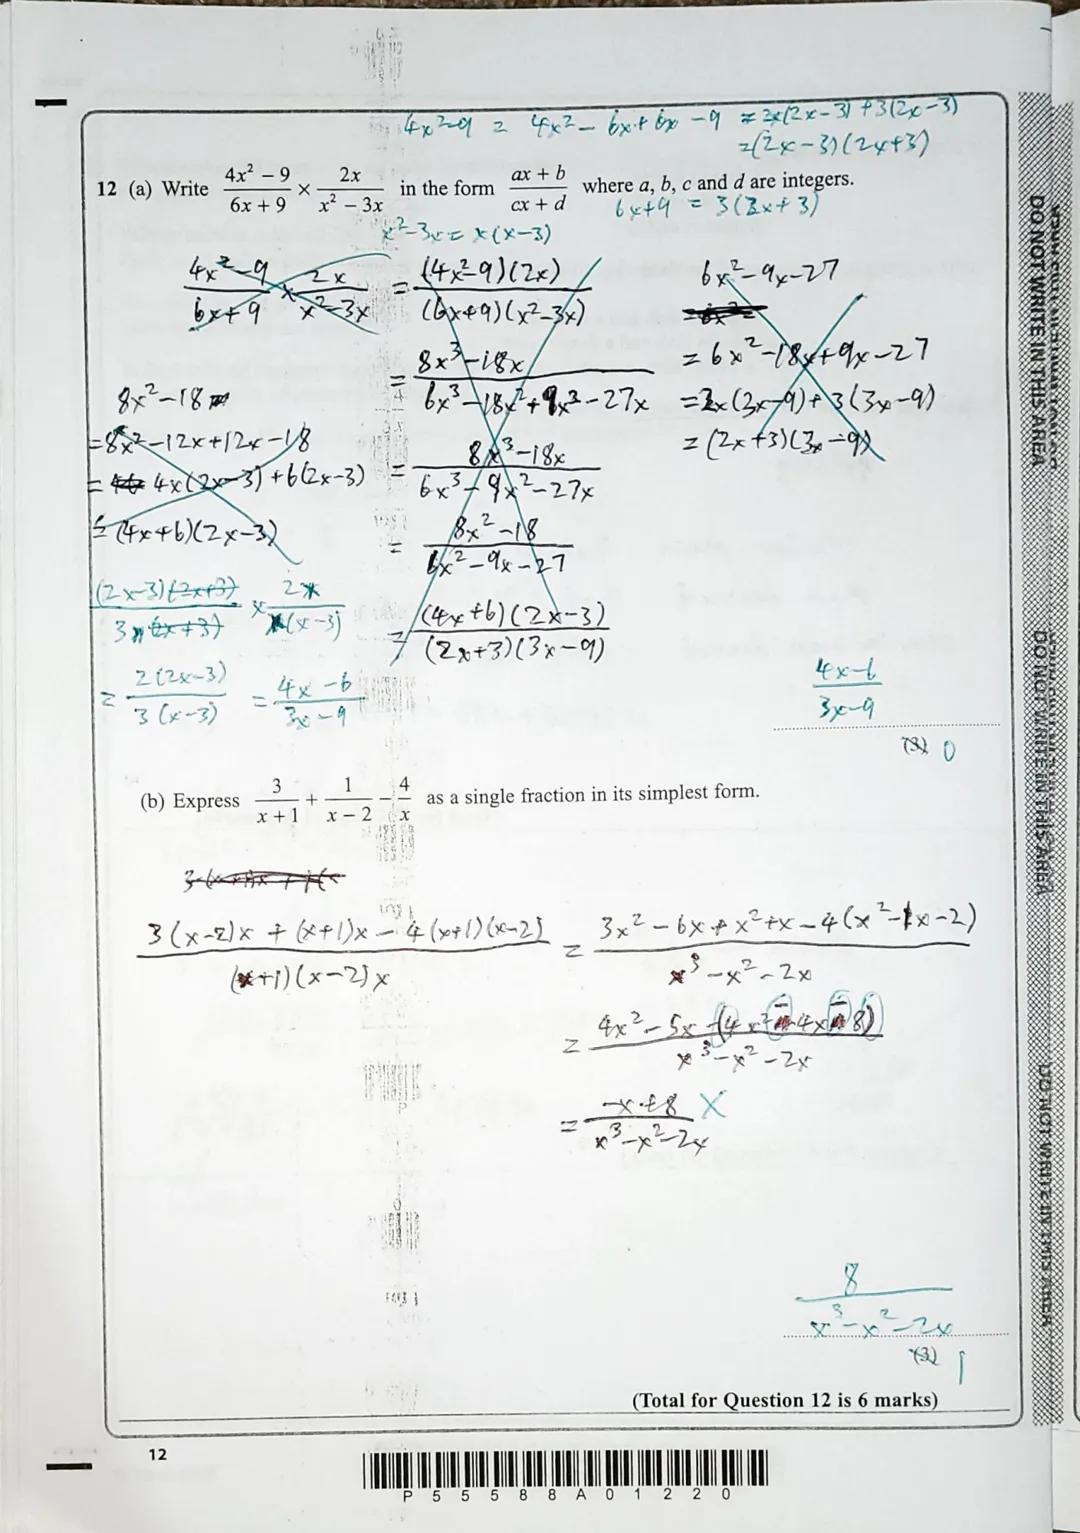 4x²-9 = 4x² - 6x + 6x - 9 = 2x(2x-3)+3(2x-3)
=(2x-3)(2x+3)
12 (a) Write (4x² − 9)/(6x + 9) × 2x/(x² − 3x) in the form (ax + b)/(cx + d) where a, b, c and d are integers.
6x+9 = 3(2x+3)
x²-3x = x(x-3)
(4x²-9)/(6x+9) × 2x/(x²-3x) = (4x²-9)(2x)/(6x+9)(x²-3x)
6x²-9x-27
= (8x³-18x)/(6x³-18x²+9x²-27x)
= 6x²-18x+9x-27
8x²-18
= 2x(3x-9)+3(3x-9)
=8x²-12x+12x-18
= (8x³-18x)/(6x³-9x²-27x)
= (2x+3)(3x-9)
= 4x(2x-3)+6(2x-3)
= (8x²-18)/(6x²-9x-27)
= (4x+6)(2x-3)
(2x-3)(2x+3)/3(2x+3) × 2x/x(x-3)
= (4x+6)(2x-3)/(2x+3)(3x-9)
= 2(2x-3)/3(x-3) = (4x-6)/(3x-9)
(4x-6)/(3x-9)
(3) 0
(b) Express 3/(x + 1) + 1/(x − 2) − 4/x as a single fraction in its simplest form.
(3(x-2)x + (x+1)x - 4(x+1)(x-2))/((x+1)(x-2)x) = (3x² - 6x + x²+x - 4(x²-1x-2))/(x³-x²-2x)
= (4x²-5x-(4x²-4x-8))/(x³-x²-2x)
= (-x+8)/(x³-x²-2x) X
8/(x³-x²-2x)
(3) 1
(Total for Question 12 is 6 marks)
12
P55588A01220
DO NOT WRITE IN THIS AREA
DO NOT WRITE IN THIS AREA
DO NOT WRITE IN THIS AREA